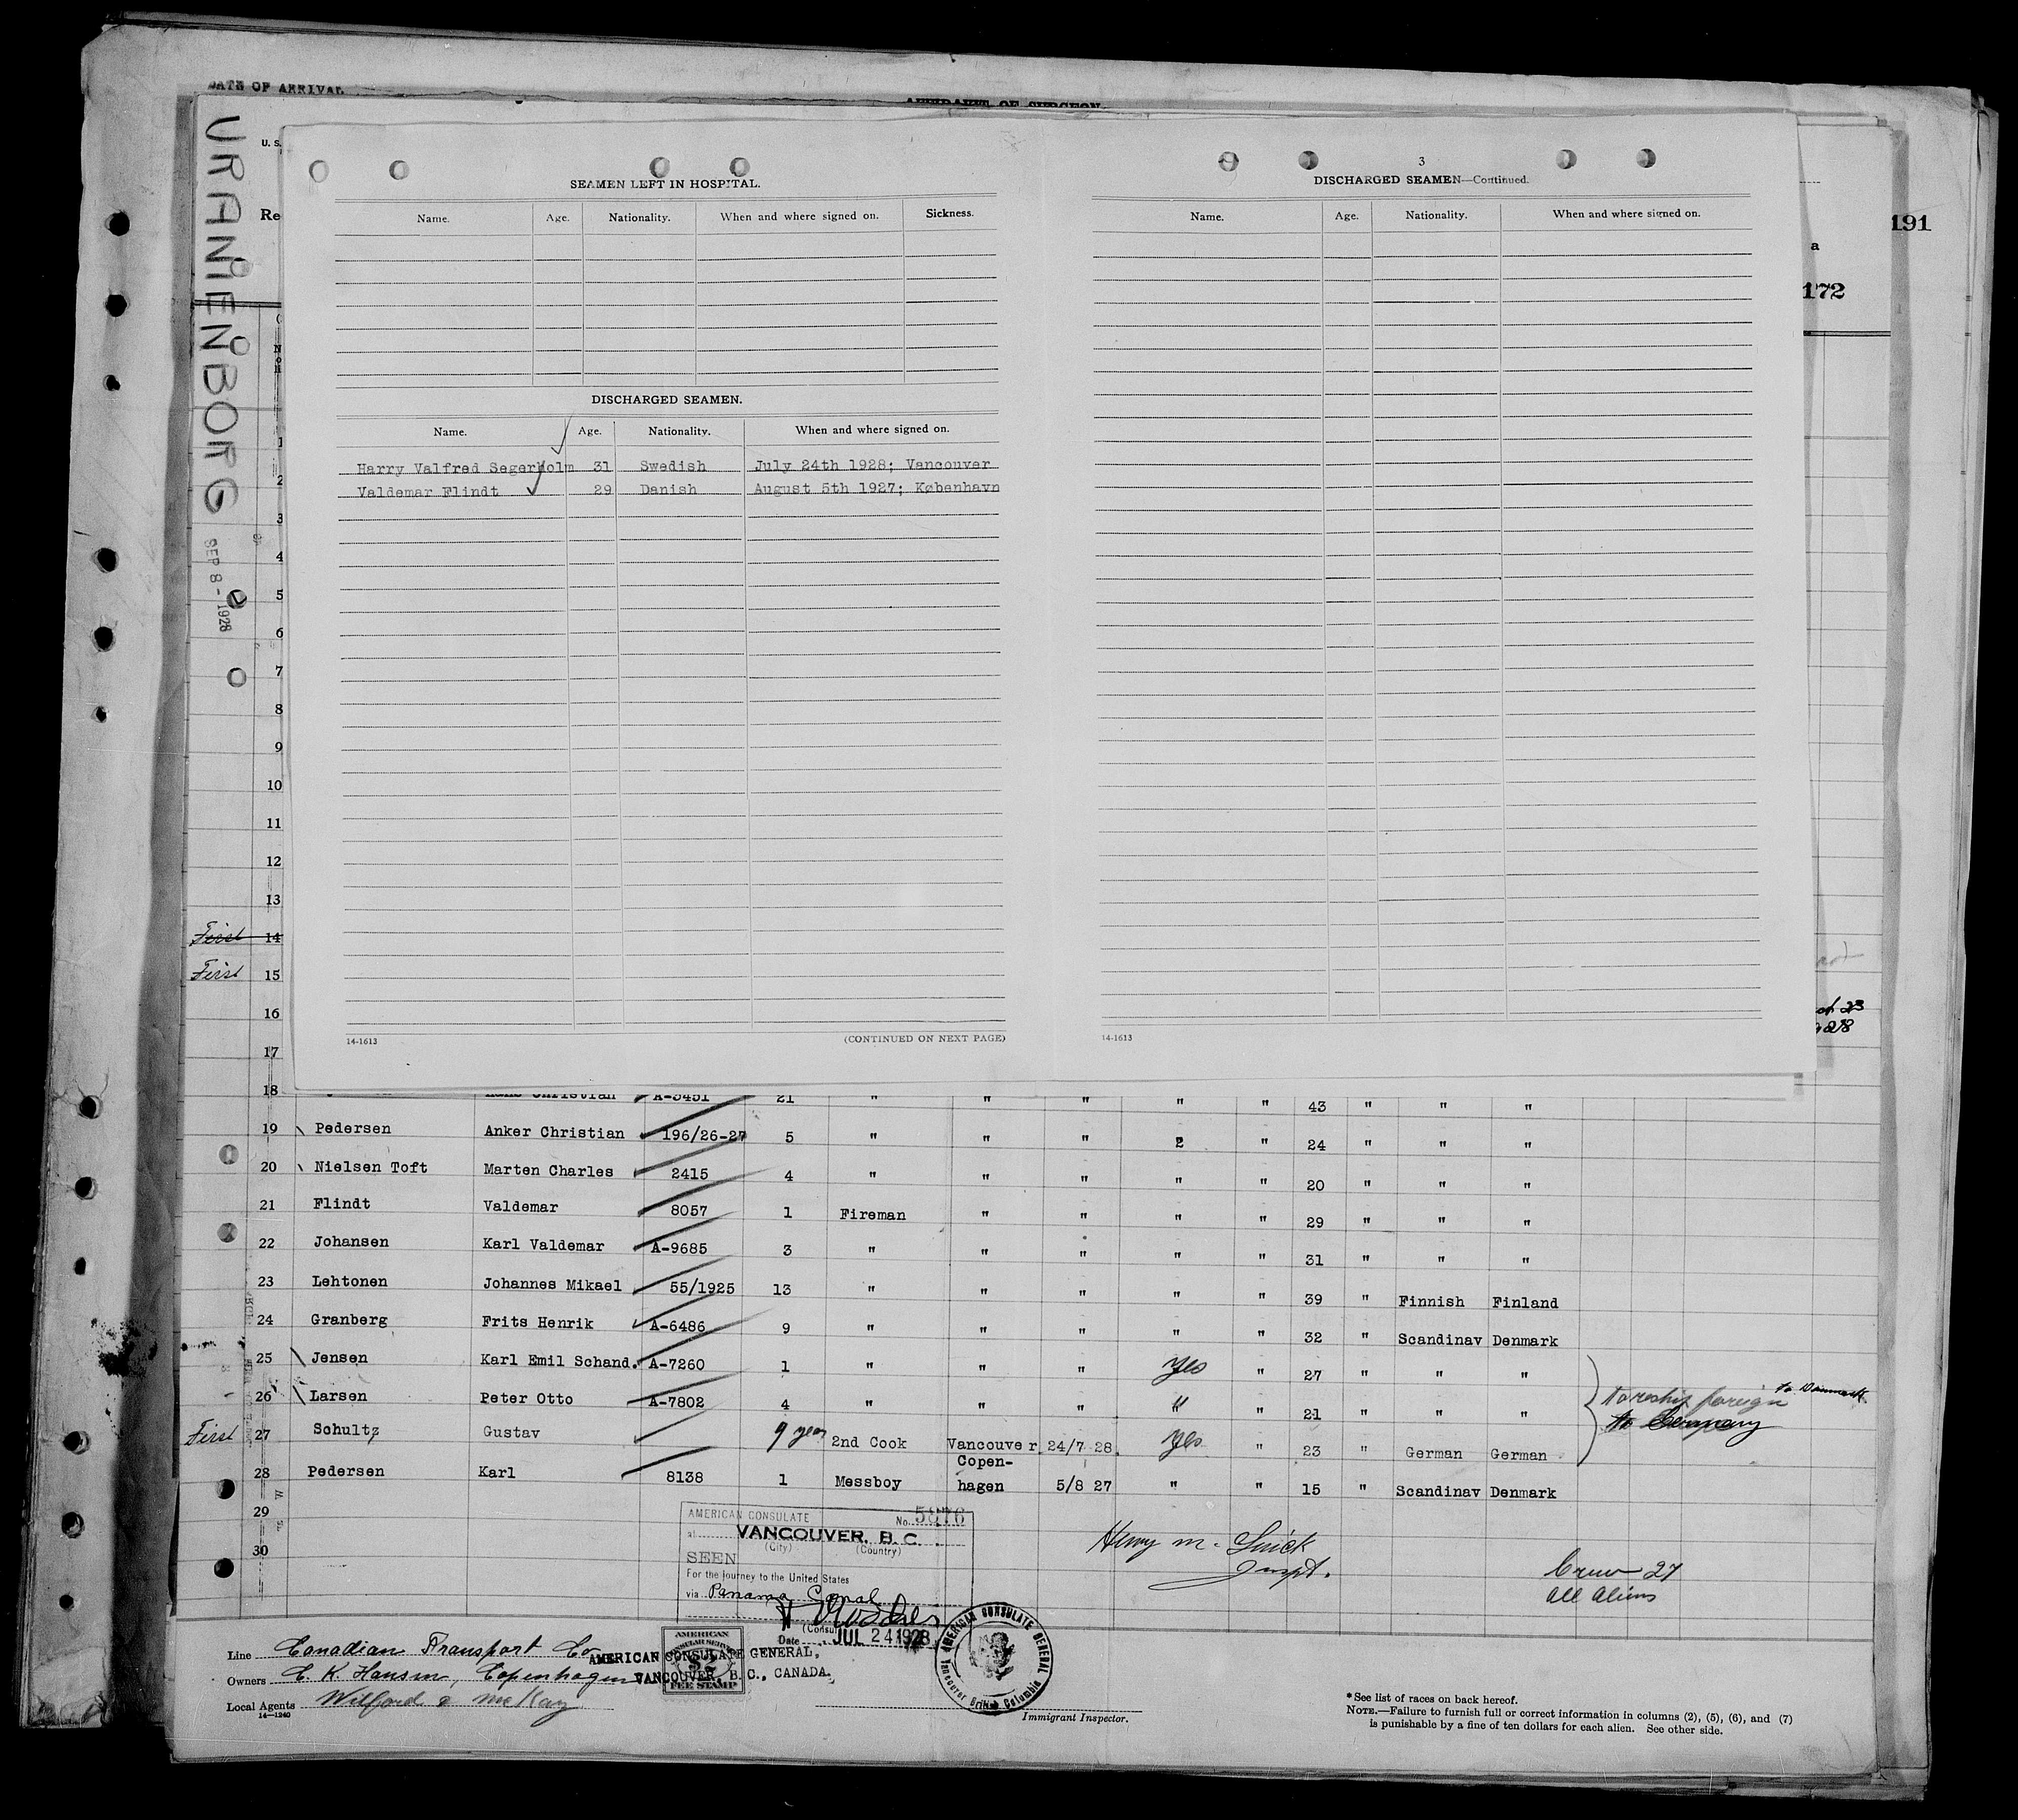 DATE OF ARRIVAL
AFFIDAVIT OF SURGEON
URANIENBORG
SEP 8 - 1928
U. S.
Re
191
a
172
SEAMEN LEFT IN HOSPITAL.
Name. Age. Nationality. When and where signed on. Sickness.
DISCHARGED SEAMEN.
Name. Age. Nationality. When and where signed on.
Harry Valfred Segerholm 31 Swedish July 24th 1928; Vancouver
Valdemar Flindt 29 Danish August 5th 1927; København
14-1613 (CONTINUED ON NEXT PAGE)
3
DISCHARGED SEAMEN—Continued.
Name. Age. Nationality. When and where signed on.
14-1613
1
2
3
4
5
6
7
8
9
10
11
12
13
First 14
First 15
16
17
18 Christian A-5451 21 " " " " " 43 " " "
19 Pedersen Anker Christian 196/26-27 5 " " " 2 " 24 " " "
20 Nielsen Toft Marten Charles 2415 4 " " " " " 20 " " "
21 Flindt Valdemar 8057 1 Fireman " " " " 29 " " "
22 Johansen Karl Valdemar A-9685 3 " " " " " 31 " " "
23 Lehtonen Johannes Mikael 55/1925 13 " " " " " 39 " Finnish Finland
24 Granberg Frits Henrik A-6486 9 " " " " " 32 " Scandinav Denmark
25 Jensen Karl Emil Schand. A-7260 1 " " " Yes " 27 " " "
26 Larsen Peter Otto A-7802 4 " " " " " 21 " " " to reship foreign to Denmark
First 27 Schultz Gustav 9 years 2nd Cook Vancouver 24/7 28. Yes " 23 " German German to Germany
28 Pedersen Karl 8138 1 Messboy Copen-hagen 5/8 27 " " 15 " Scandinav Denmark
29
30
AMERICAN CONSULATE No. 5876
at VANCOUVER, B. C.
(City) (Country)
SEEN
For the journey to the United States
via Panama Canal
(Consul)
Date JUL 24 1928
Henry M.
Inspt.
Crew 27
All Aliens
AMERICAN CONSULATE GENERAL,
VANCOUVER, B. C., CANADA.
AMERICAN
CONSULAR SERVICE
$2
FEE STAMP
AMERICAN CONSULATE GENERAL
Vancouver British Columbia
Line Canadian Transport Co
Owners C. K. Hansen, Copenhagen
Local Agents Wilford & McKay
14—1240
Immigrant Inspector.
*See list of races on back hereof.
NOTE.—Failure to furnish full or correct information in columns (2), (5), (6), and (7)
is punishable by a fine of ten dollars for each alien. See other side.